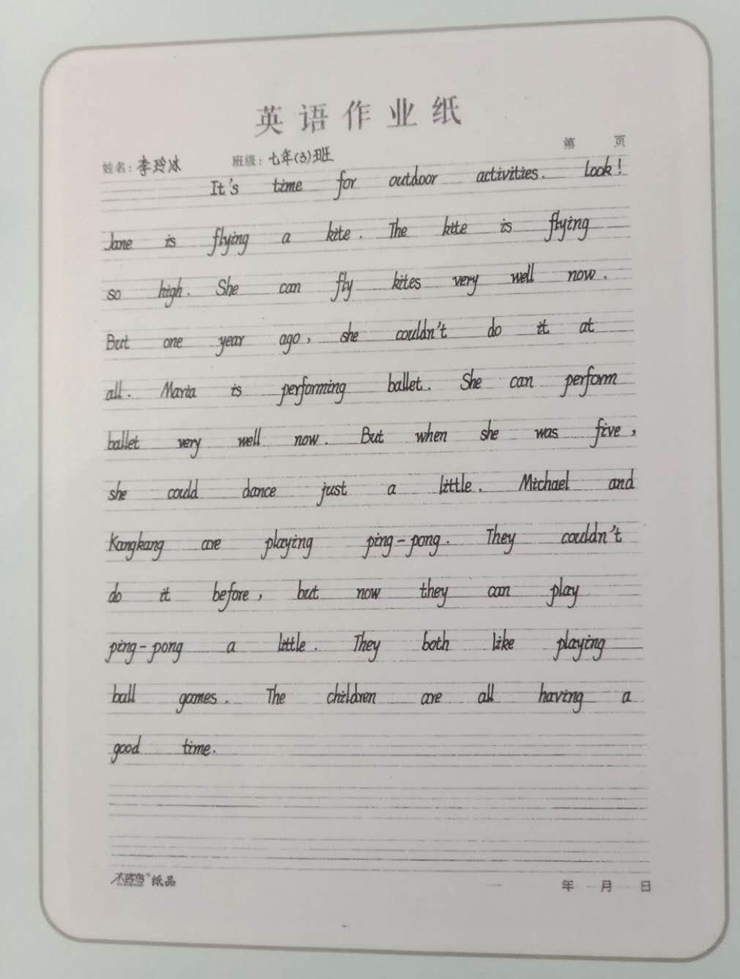 英语作业纸
姓名：李玲冰 班级：七年(3)班 第 页
It's time for outdoor activities. Look!
Jane is flying a kite. The kite is flying
so high. She can fly kites very well now.
But one year ago, she couldn't do it at
all. Maria is performing ballet. She can perform
ballet very well now. But when she was five,
she could dance just a little. Michael and
Kangkang are playing ping-pong. They couldn't
do it before, but now they can play
ping-pong a little. They both like playing
ball games. The children are all having a
good time.
纸品 年 月 日